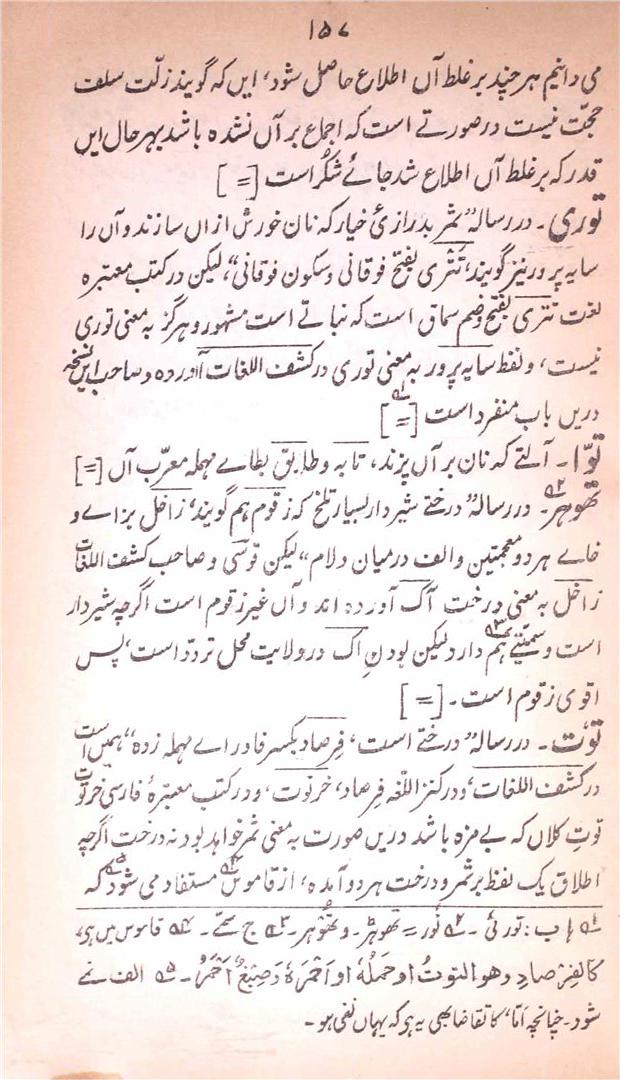 ۱۵۷
می دانیم هر چند بر غلط آں اطلاع حاصل شود، ایں کہ گویند زلّت سلف
حجّت نیست در صورتے است کہ اجماع بر آں نشدہ باشد بہر حال ایں
قدر کہ بر غلط آں اطلاع شد جائے شکر است [=]
توری۔ در رسالہ" ثمر بدرازیٔ خیار کہ نان خورش ازاں سازند و آں را
سایہ پرور نیز گویند، تتری بفتح فوقانی و سکون فوقانی"، لیکن در کتب معتبرہ
لغت تتری بفتح و ضم سماق است کہ نباتے است مشہور و ہرگز بہ معنی توری
نیست، و لفظ سایہ پرور بہ معنی توری در کشف اللغات آوردہ و صاحب ایں نسخہ
دریں باب منفرد است [=]
توا۔ آلتے کہ نان بر آں پزند، تابہ و طابق بطاے مہملہ معرّب آں [=]
تھوہر۲؎۔ در رسالہ" درختے شیردار بسیار تلخ کہ زقوم ہم گویند، زاخل بزاے و
خاے ہر دو معجمتین و الف درمیان و لام" لیکن قوسی و صاحب کشف اللغات
زاخل بہ معنی درخت آک آوردہ اند و آں غیر زقوم است اگرچہ شیردار
است و سمّیتے۳؎ ہم دارد لیکن بودنِ اک در ولایت محل تردّد است، پس
اقوی زقوم است۔ [=]
توت۔ در رسالہ" درختے است، فِرصاد بکسر فا و راے مہملہ زدہ"، ہمیں است
در کشف اللغات، و در کنز اللّغہ فِرصاد، خرتوت، و در کتب معتبرۂ فارسی خرتوت
توتِ کلاں کہ بے مزہ باشد دریں صورت بہ معنی ثمر خواہد بود نہ درخت اگرچہ
اطلاق یک لفظ بر ثمر و درخت ہر دو آمدہ، از قاموس۴؎ مستفاد می شود۵؎ کہ
۱؎ ا ب : تورئی ۔ ۲؎ نُور = تھوہڑ ۔ و تھُوہر ۔ ۳؎ ج سمّے ۔ ۴؎ قاموس میں ہی،
کالفِرْصادِ وھوالتوتُ اوحَمْلُہٗ اواَحْمَرُہٗ وَصِبْغٌ اَحْمَرُ ۔ ۵؎ الف نمے
شود۔ چنانچہ امّا، کا تقاضا بھی یہ ہی کہ یہاں نفی ہو۔